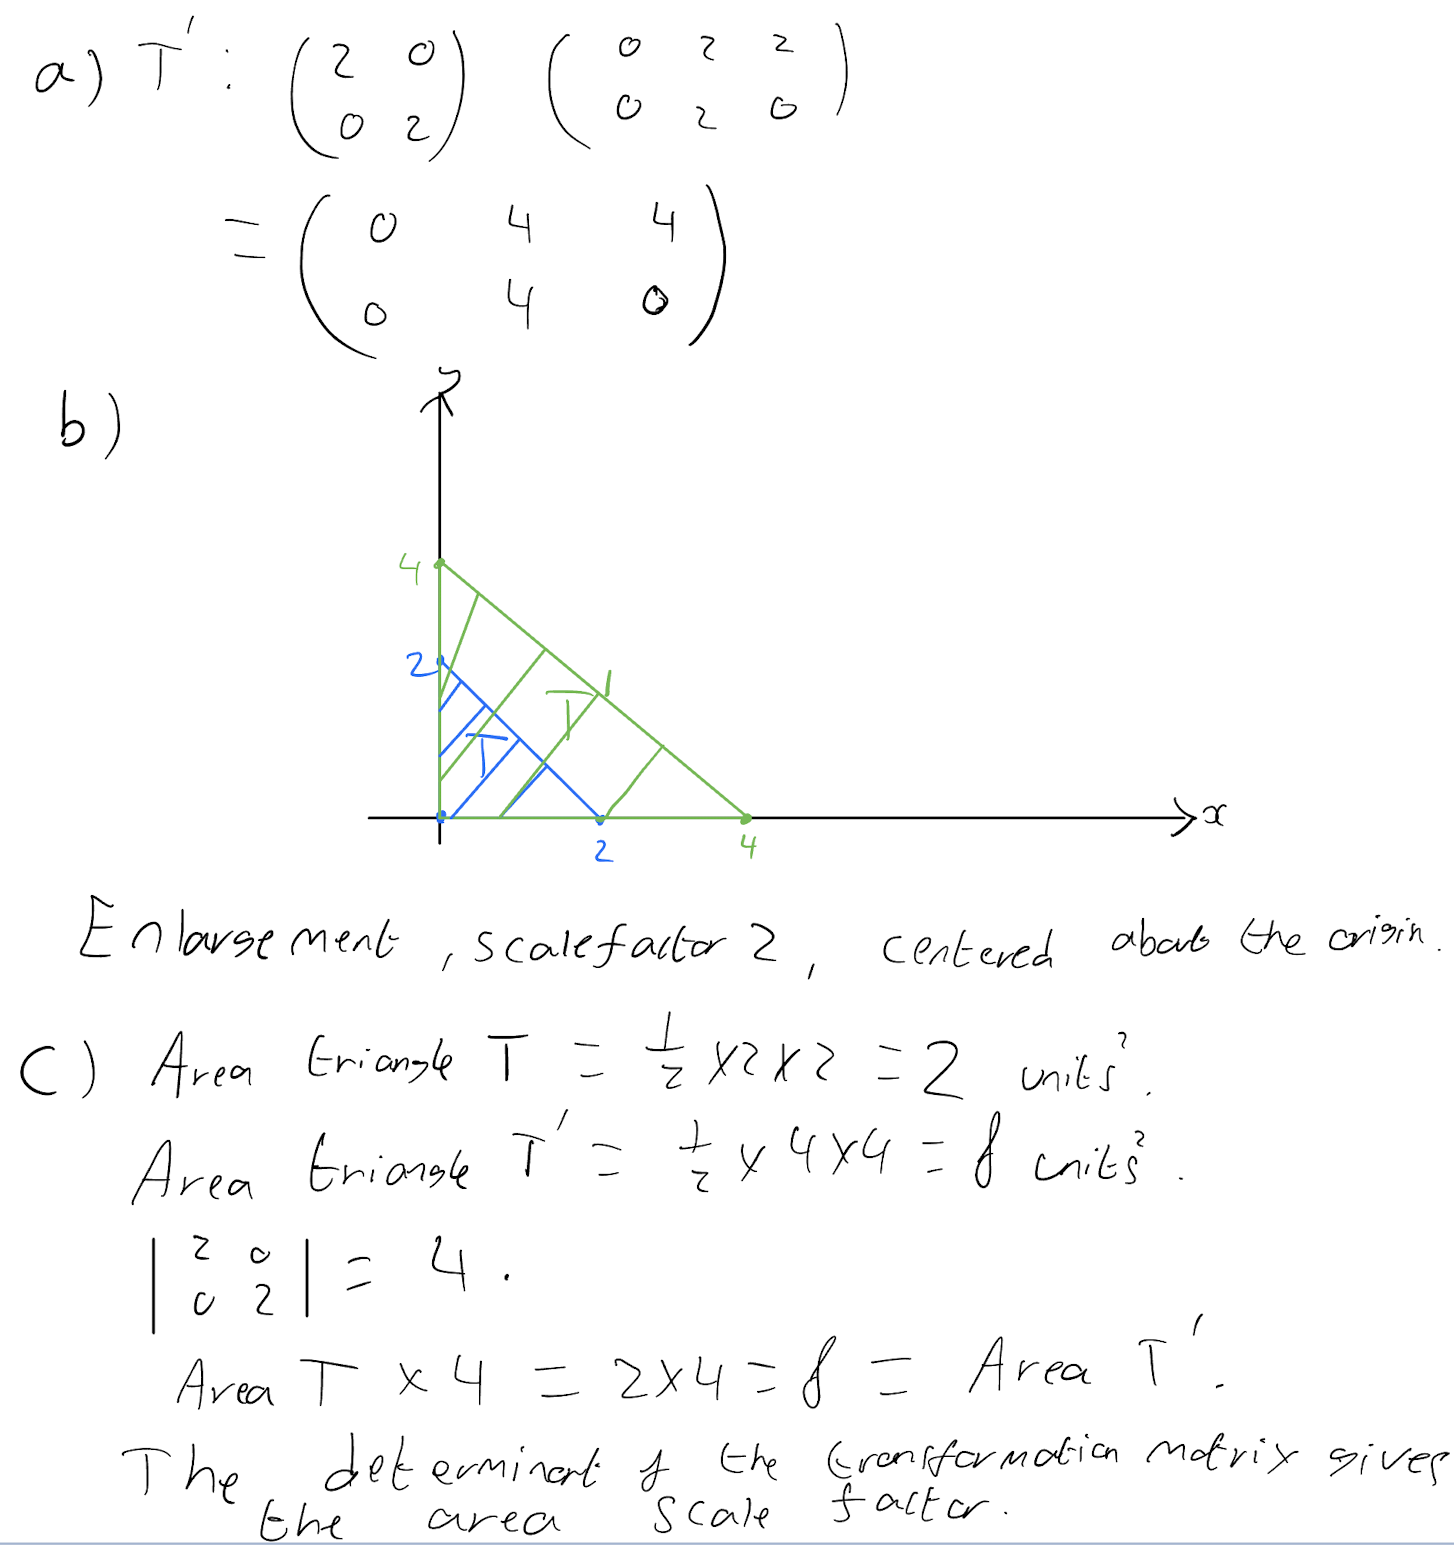 a) T' : (2 0
0 2) (0 2 2
0 2 0)
= (0 4 4
0 4 0)
b)
y
4
2
T'
T
x
2
4
Enlargement, scale factor 2, centered about the origin.
C) Area triangle T = 1/2 × 2 × 2 = 2 units².
Area triangle T' = 1/2 × 4 × 4 = 8 units².
|2 0
0 2| = 4.
Area T × 4 = 2×4 = 8 = Area T'.
The determinant of the transformation matrix gives
the area scale factor.